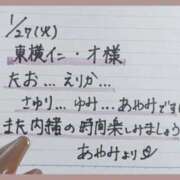 1/27(火)
東横イン・才様
たお…えりか…
さゆり…ゆみ…あやみです
また内緒の時間楽しみましょう
あやみより